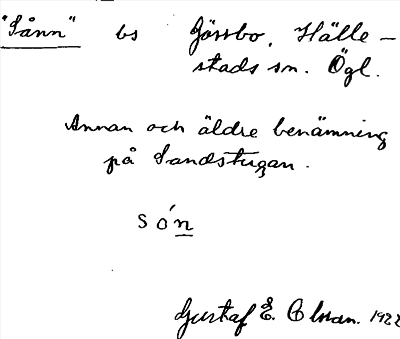 "Sånn" bs Jössbo, Hälle-
stads sn. Ögl.
Annan och äldre benämning
på Sandstugan.
són
Gustaf E. 1922